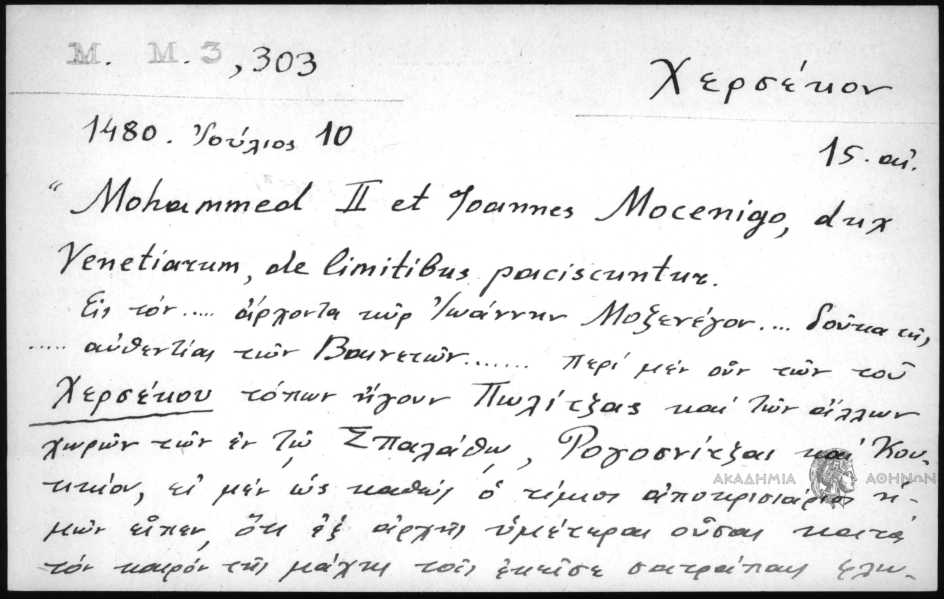 M. M. 3, 303
Χερσέκον
1480. Ἰούλιος 10
15. αἰ.
"Mohammed II et Joannes Mocenigo, dux
Venetiarum, de limitibus paciscuntur.
Εἰς τόν..... ἄρχοντα κῦρ Ἰωάννην Μοξενέγον.... δοῦκα τῆς
..... αὐθεντίας τῶν Βαινετῶν....... περί μέν οὖν τῶν τοῦ
Χερσέκου τόπων ἤγουν Πωλίτζας καί τῶν ἄλλων
χωρῶν τῶν ἐν τῷ Σπαλάθῳ, Ρογοσνίτζας καί Κου-
κκίου, εἰ μέν ὡς καθώς ὁ τίμιος ἀποκρισιάριος ἡ-
μῶν εἶπεν, ὅτι ἐξ ἀρχῆς ὑμέτεραι οὖσαι κατά
τόν καιρόν τῆς μάχης τοῖς ἐκεῖσε σατράπαις
ΑΚΑΔΗΜΙΑ ΑΘΗΝΩΝ